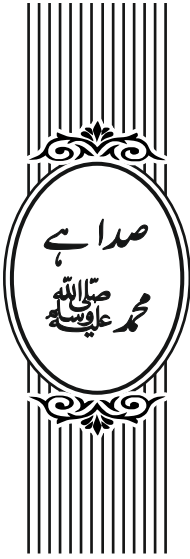 صدا ہے
محمد صلی اللہ علیہ وسلم